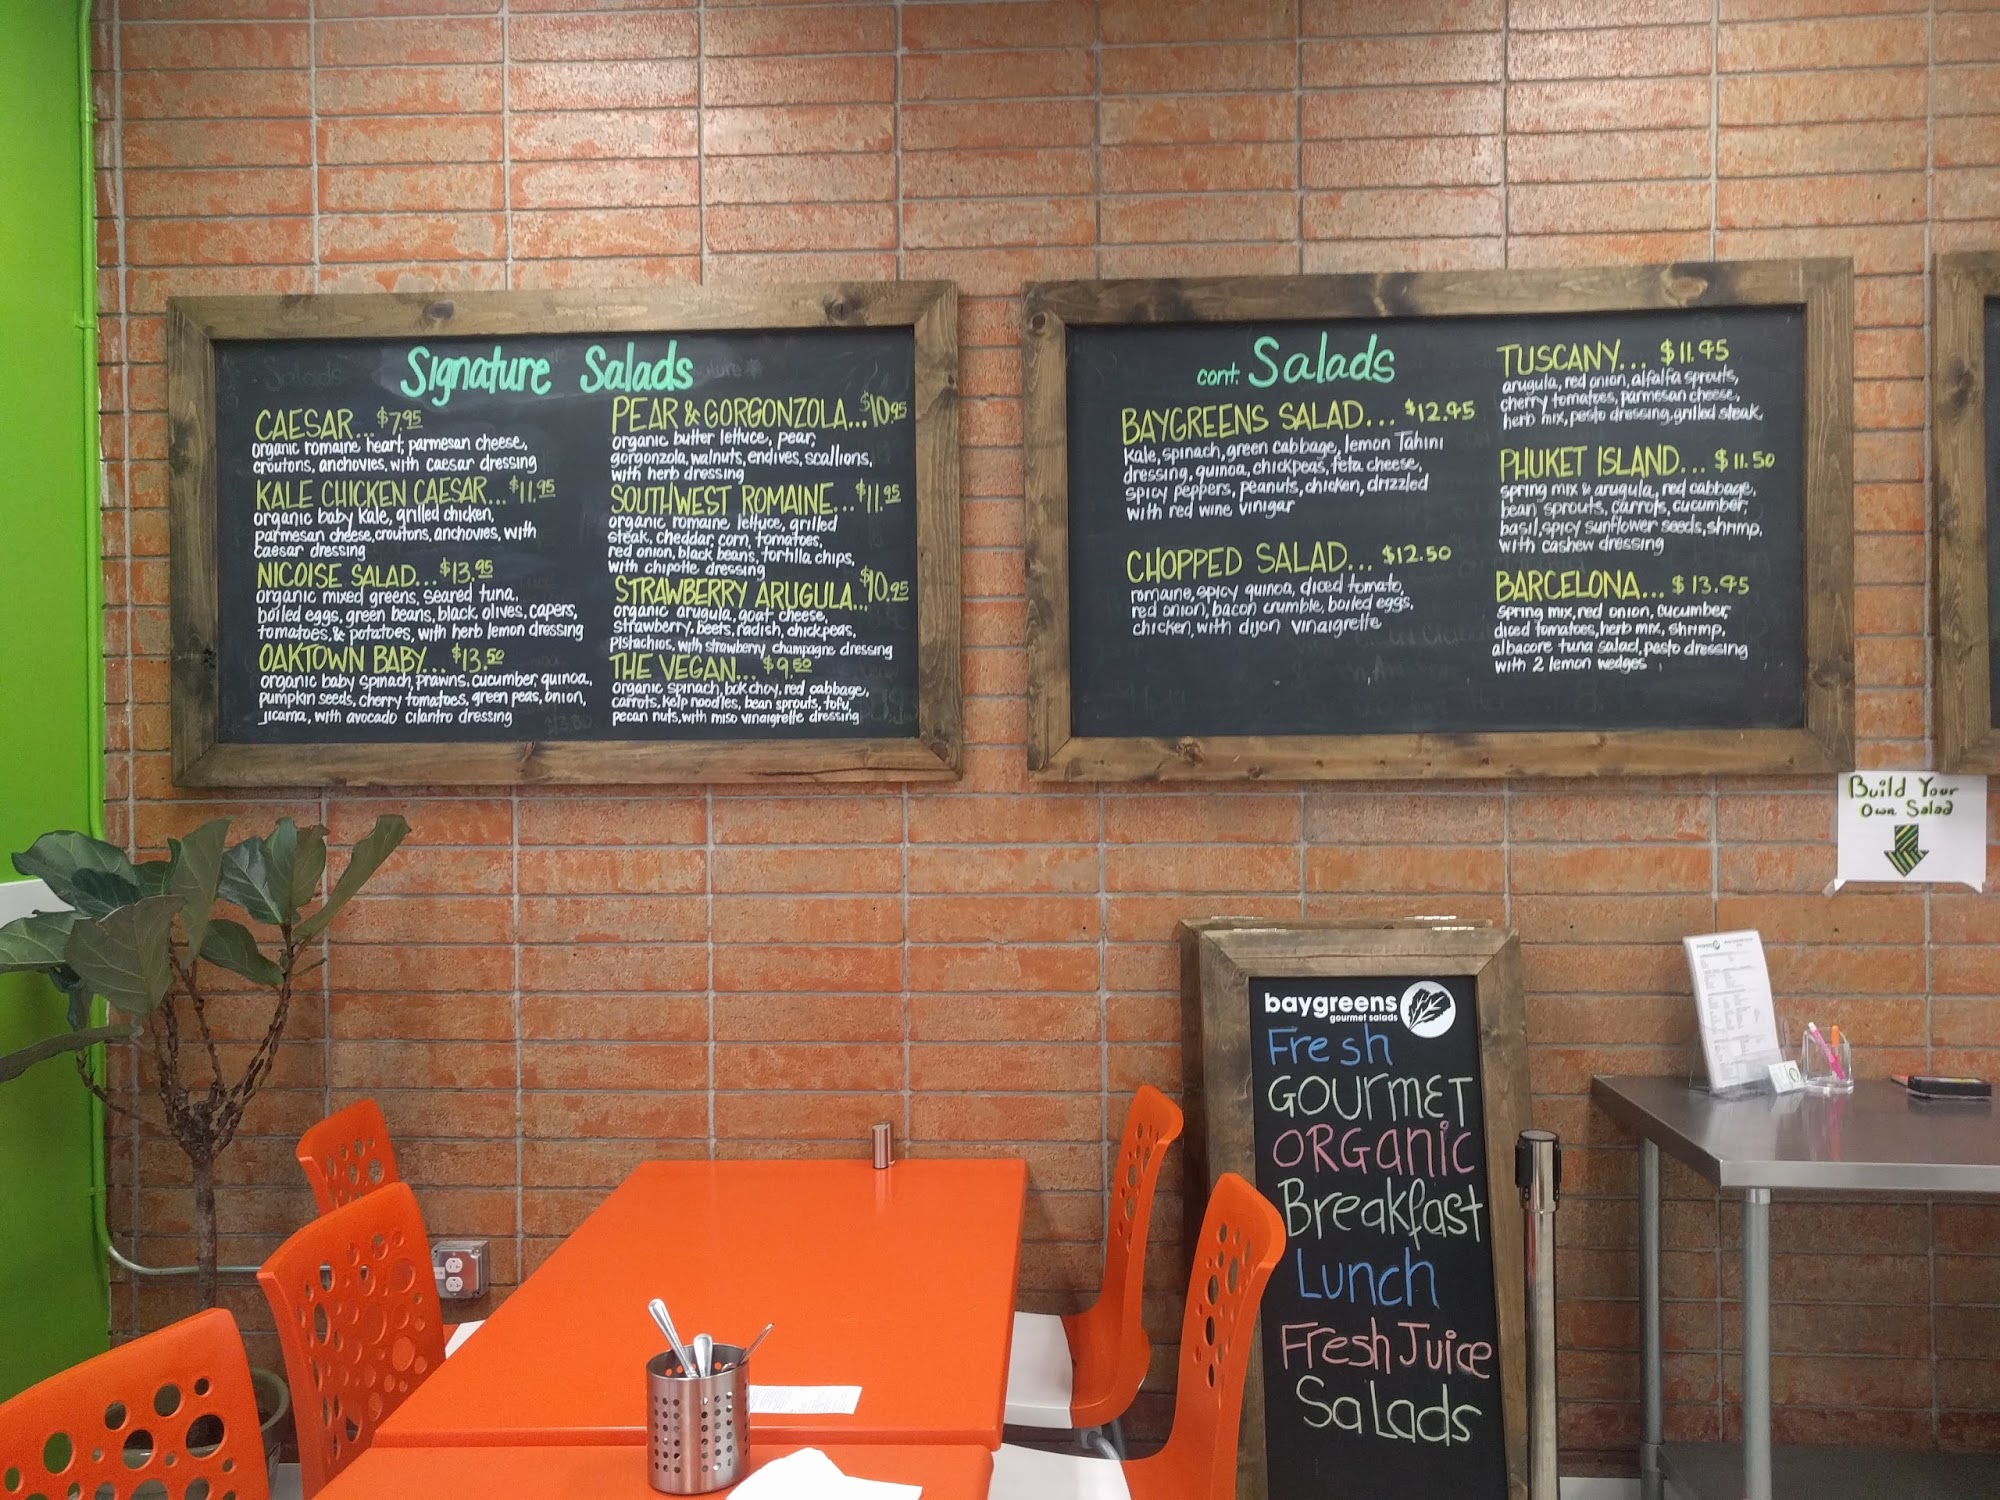 Signature Salads
CAESAR... $7.95
organic romaine heart, parmesan cheese,
croutons, anchovies, with caesar dressing
KALE CHICKEN CAESAR... $11.95
organic baby kale, grilled chicken,
parmesan cheese, croutons, anchovies, with
caesar dressing
NICOISE SALAD... $13.95
organic mixed greens, seared tuna,
boiled eggs, green beans, black olives, capers,
tomatoes, & potatoes, with herb lemon dressing
OAKTOWN BABY... $13.50
organic baby spinach, prawns, cucumber, quinoa,
pumpkin seeds, cherry tomatoes, green peas, onion,
jicama, with avocado cilantro dressing
PEAR & GORGONZOLA... $10.95
organic butter lettuce, pear,
gorgonzola, walnuts, endives, scallions,
with herb dressing
SOUTHWEST ROMAINE... $11.95
organic romaine lettuce, grilled
steak, cheddar, corn, tomatoes,
red onion, black beans, tortilla chips,
with chipotle dressing
STRAWBERRY ARUGULA... $10.95
organic arugula, goat cheese,
strawberry, beets, radish, chickpeas,
pistachios, with strawberry champagne dressing
THE VEGAN... $9.50
organic spinach, bok choy, red cabbage,
carrots, kelp noodles, bean sprouts, tofu,
pecan nuts, with miso vinaigrette dressing
cont. Salads
BAYGREENS SALAD... $12.95
Kale, spinach, green cabbage, lemon Tahini
dressing, quinoa, chickpeas, feta cheese,
spicy peppers, peanuts, chicken, drizzled
with red wine vinigar
CHOPPED SALAD... $12.50
romaine, spicy quinoa, diced tomato,
red onion, bacon crumble, boiled eggs,
chicken, with dijon vinaigrette
TUSCANY... $11.95
arugula, red onion, alfalfa sprouts,
cherry tomatoes, parmesan cheese,
herb mix, pesto dressing, grilled steak
PHUKET ISLAND... $11.50
spring mix & arugula, red cabbage,
bean sprouts, carrots, cucumber,
basil, spicy sunflower seeds, shrimp,
with cashew dressing
BARCELONA... $13.95
spring mix, red onion, cucumber,
diced tomatoes, herb mix, shrimp,
albacore tuna salad, pesto dressing
with 2 lemon wedges
Build Your
Own Salad
baygreens
gourmet salads
Fresh
GOURMET
ORGANIC
Breakfast
Lunch
Fresh Juice
Salads